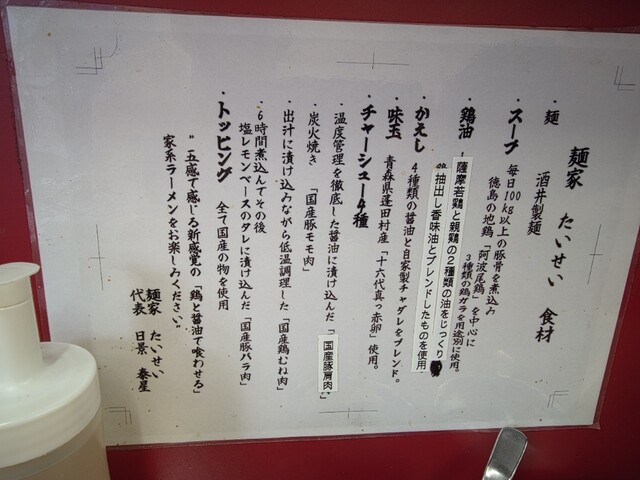 麺家 たいせい 食材
・麺 酒井製麺
・スープ 毎日100kg以上の豚骨を煮込み
徳島の地鶏「阿波尾鶏」を中心に
3種類の鶏ガラを用途別に使用。
・鶏油 薩摩若鶏と親鶏の2種類の油をじっくり
抽出し香味油とブレンドしたものを使用
・かえし 4種類の醤油と自家製チャダレをブレンド。
・味玉 青森県蓬田村産「十六代真っ赤卵」使用。
・チャーシュー4種
・温度管理を徹底した醤油に漬け込んだ「国産豚肩肉」
・炭火焼き 「国産豚モモ肉」
・出汁に漬け込みながら低温調理した「国産鶏むね肉」
・6時間煮込んでその後
塩レモンベースのタレに漬け込んだ「国産豚バラ肉」
・トッピング 全て国産の物を使用
"五感で感じる新感覚の「鶏と醤油で喰わせる」
家系ラーメンをお楽しみください。"
麺家 たいせい
代表 日景 泰星